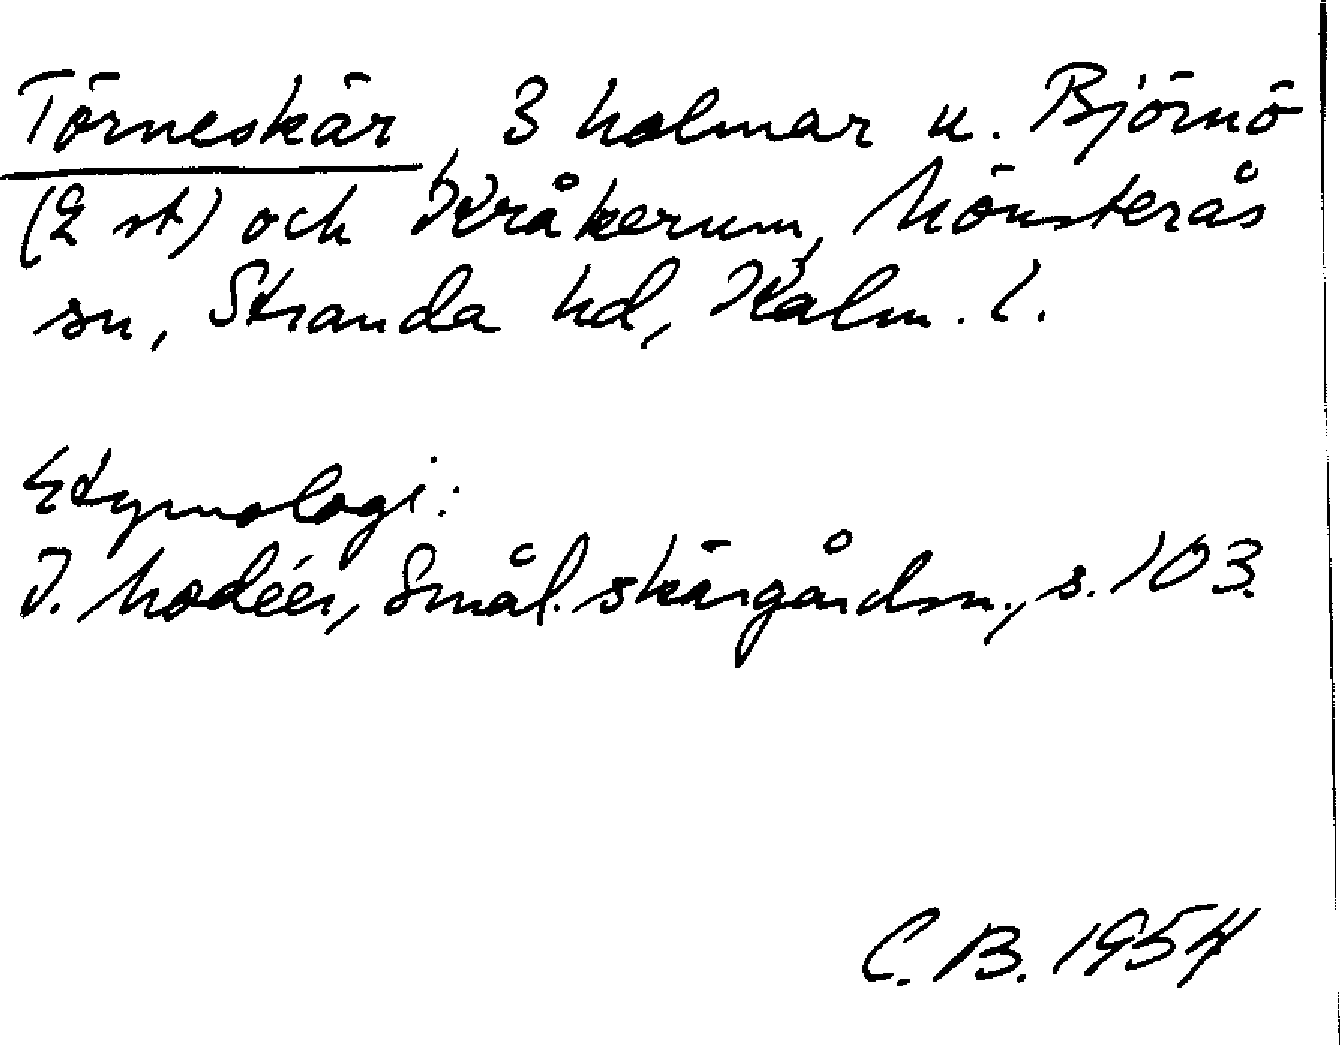 Törneskär, 3 holmar u. Björnö
(2 st) och Kråkerum, Mönsterås
sn, Stranda hd, Kalm. l.
Etymologi:
I. Modéer, Smål. skärgårdsn., s. 103.
C. B. 1954